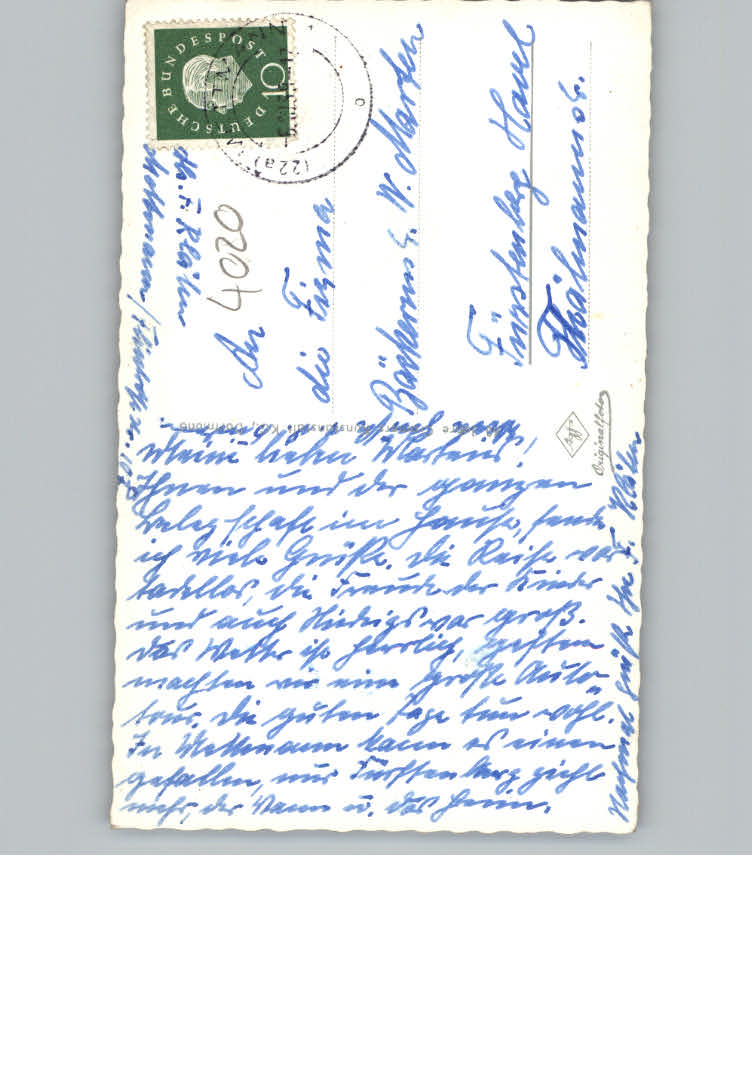 DEUTSCHE BUNDESPOST
10
(22a)
4020
An
die Firma
Bäckerms. W. Marten
Fürstenberg Havel
Thälmannstr.
Agfa
Originalfoto
Meine lieben Martens!
Ihnen und der ganzen
Belegschaft im Hause, sende
ich viele Grüße. Die Reise war
tadellos, die Freude der Kinder
und auch war groß.
Das Wetter ist herrlich, gestern
machten wir eine große Auto-
tour. Die guten Tage tun wohl.
In Mettmann kann es einen
gefallen, nur Fürstenberg zieht
mehr, der Mann u. das Heim.
Nochmal Grüße Ihre F.